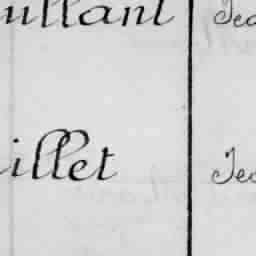 uillant Jea
illet Jea